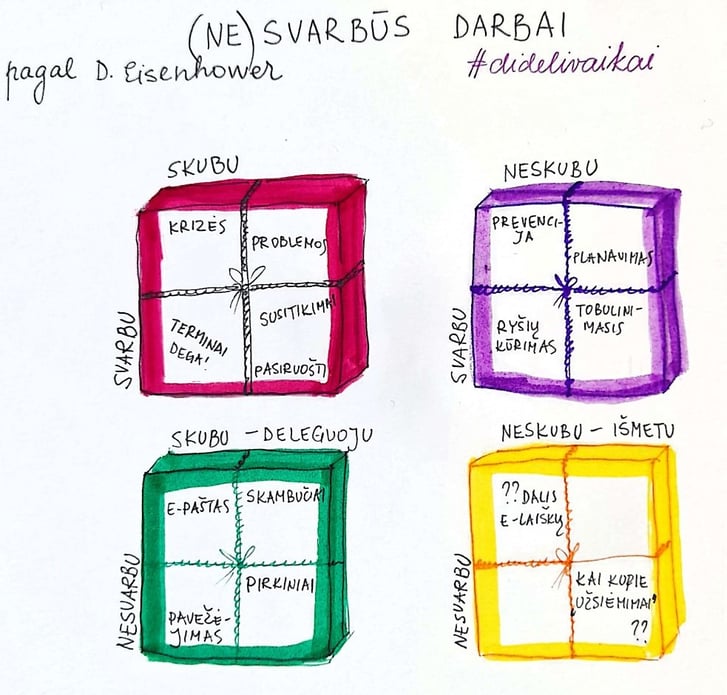 (NE)SVARBŪS DARBAI
pagal D. Eisenhower
#didelivaikai
SKUBU
SVARBU
KRIZĖS
PROBLEMOS
TERMINAI
DEGA!
SUSITIKIMAI
PASIRUOŠTI
NESKUBU
SVARBU
PREVENCI-
JA
PLANAVIMAS
RYŠIŲ
KŪRIMAS
TOBULINI-
MASIS
SKUBU - DELEGUOJU
NESVARBU
E-PAŠTAS
SKAMBUČIAI
PAVEŽĖ-
JIMAS
PIRKINIAI
NESKUBU - IŠMETU
NESVARBU
??DALIS
E-LAIŠKŲ
KAI KURIE
"UŽSIĖMIMAI"
??